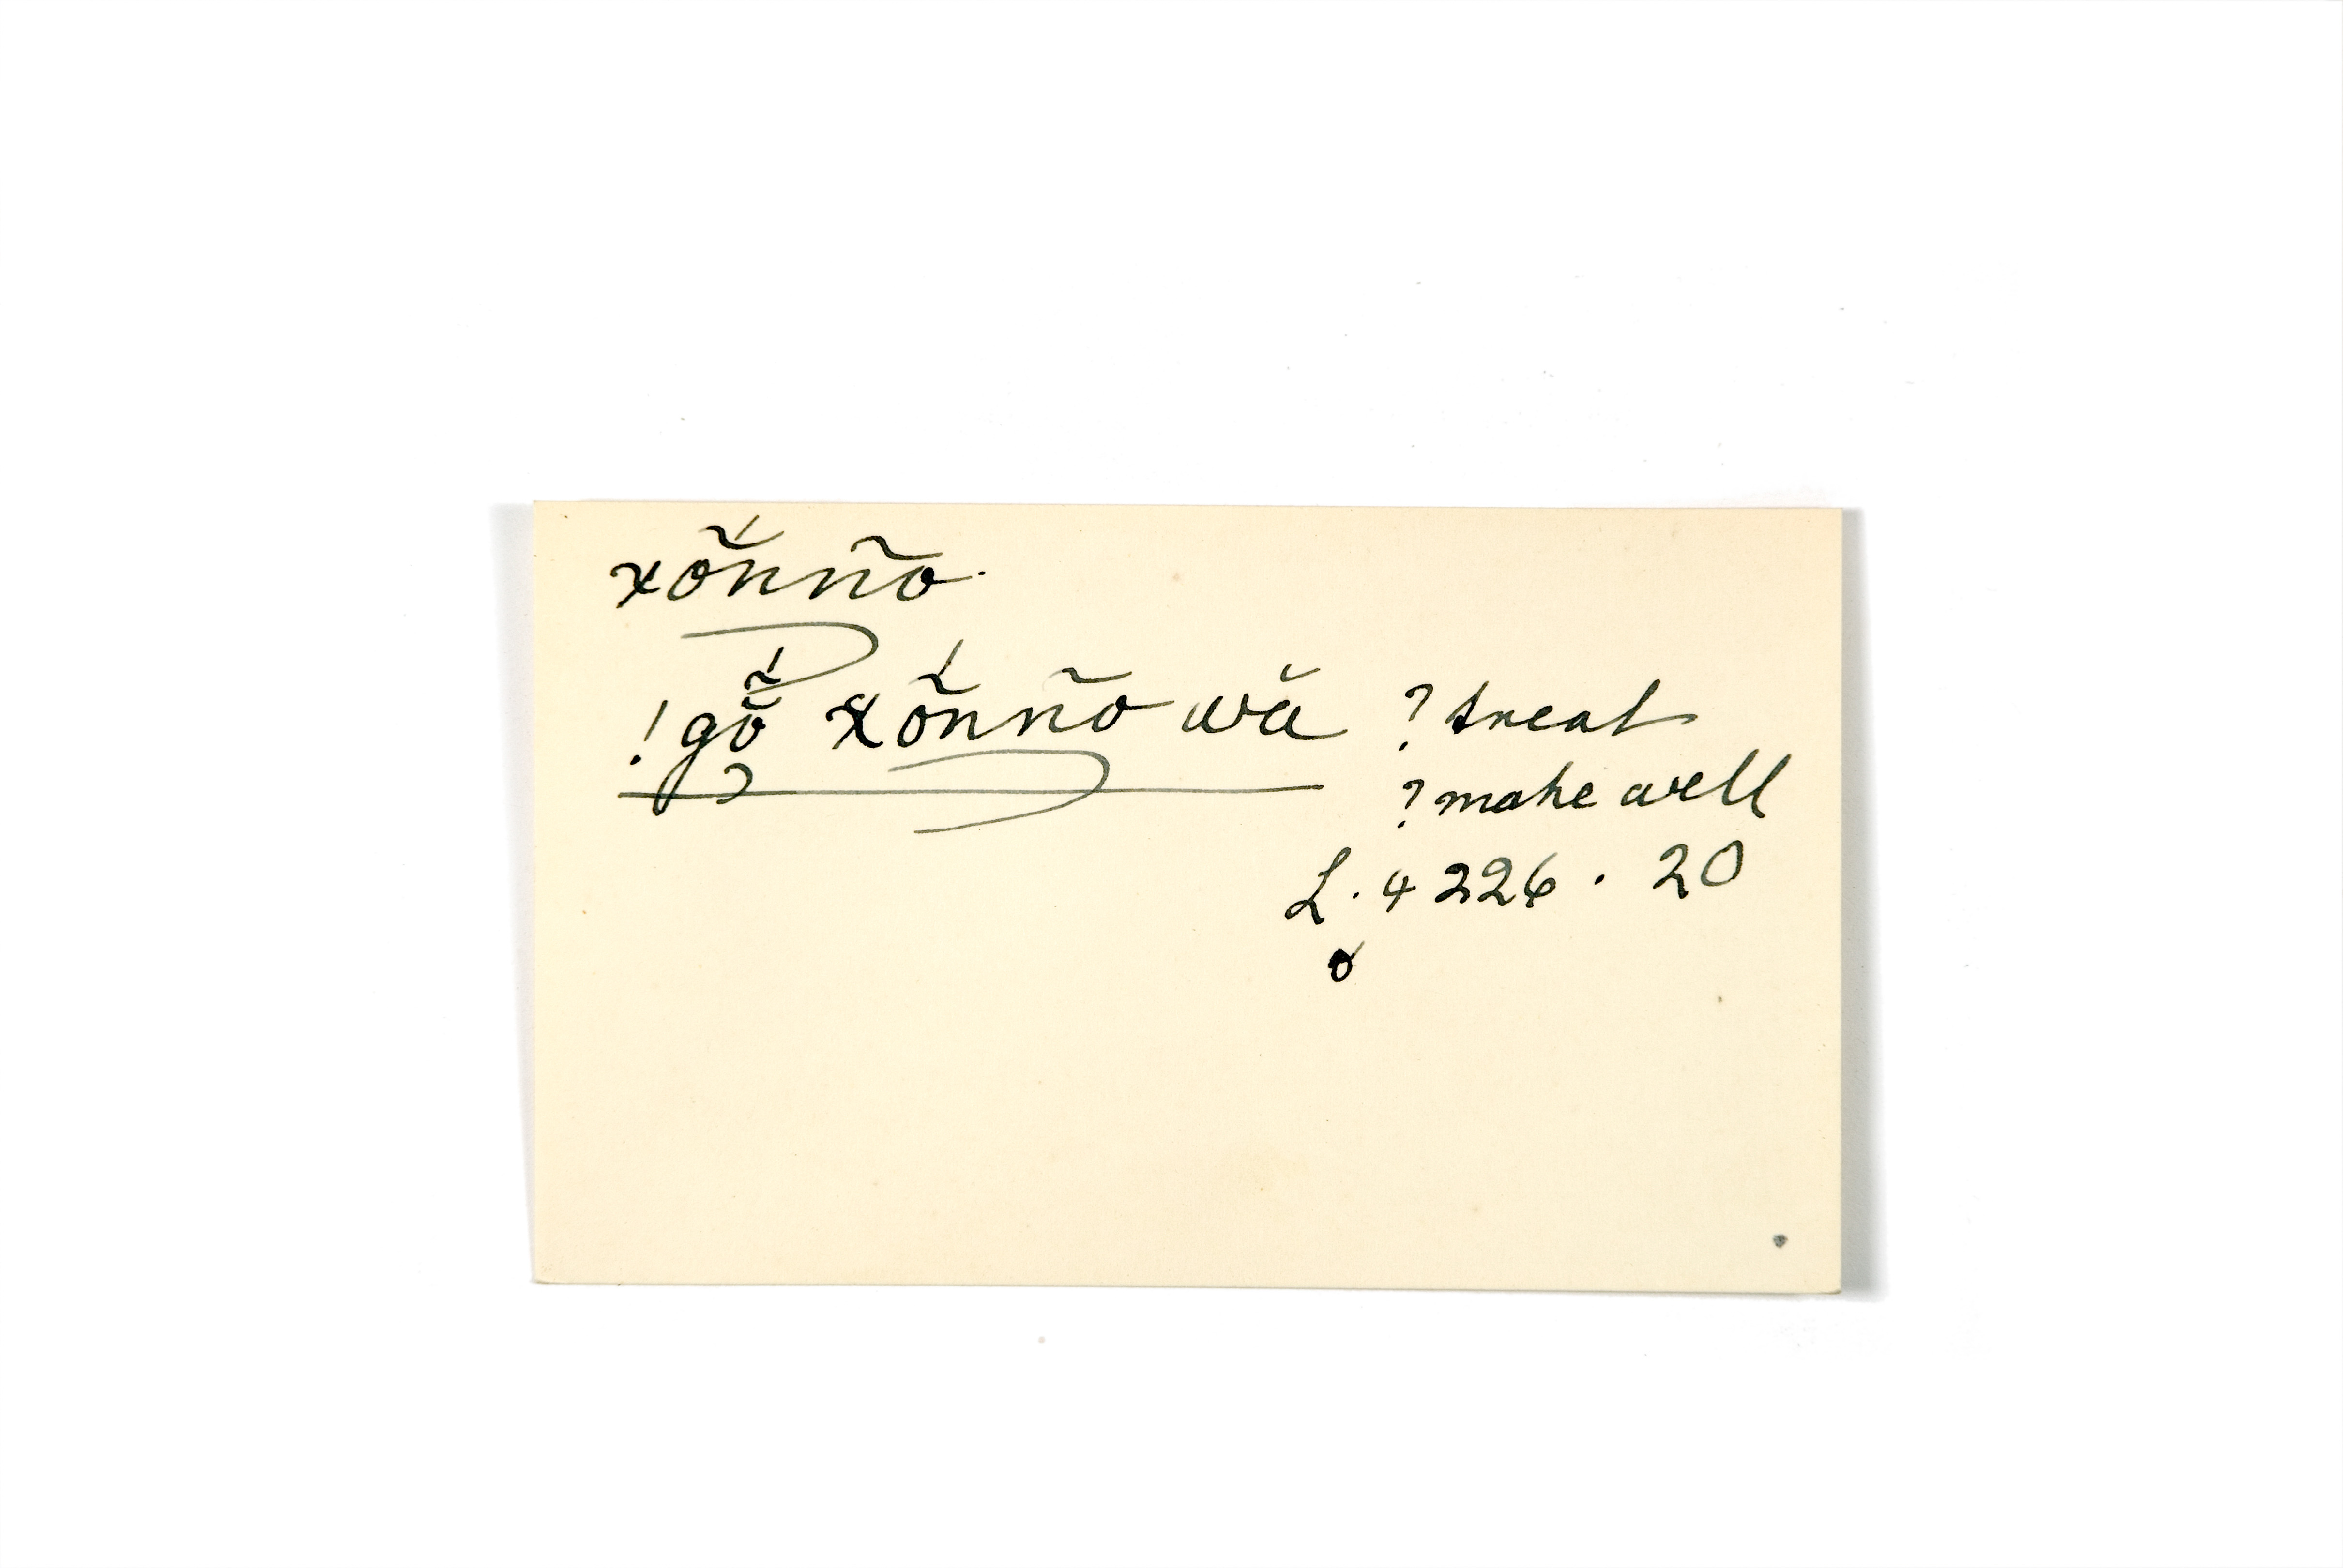 xṍnnõ.
!gṍ xṍnnõ wă ? treat
? make well
L. 4226 . 20